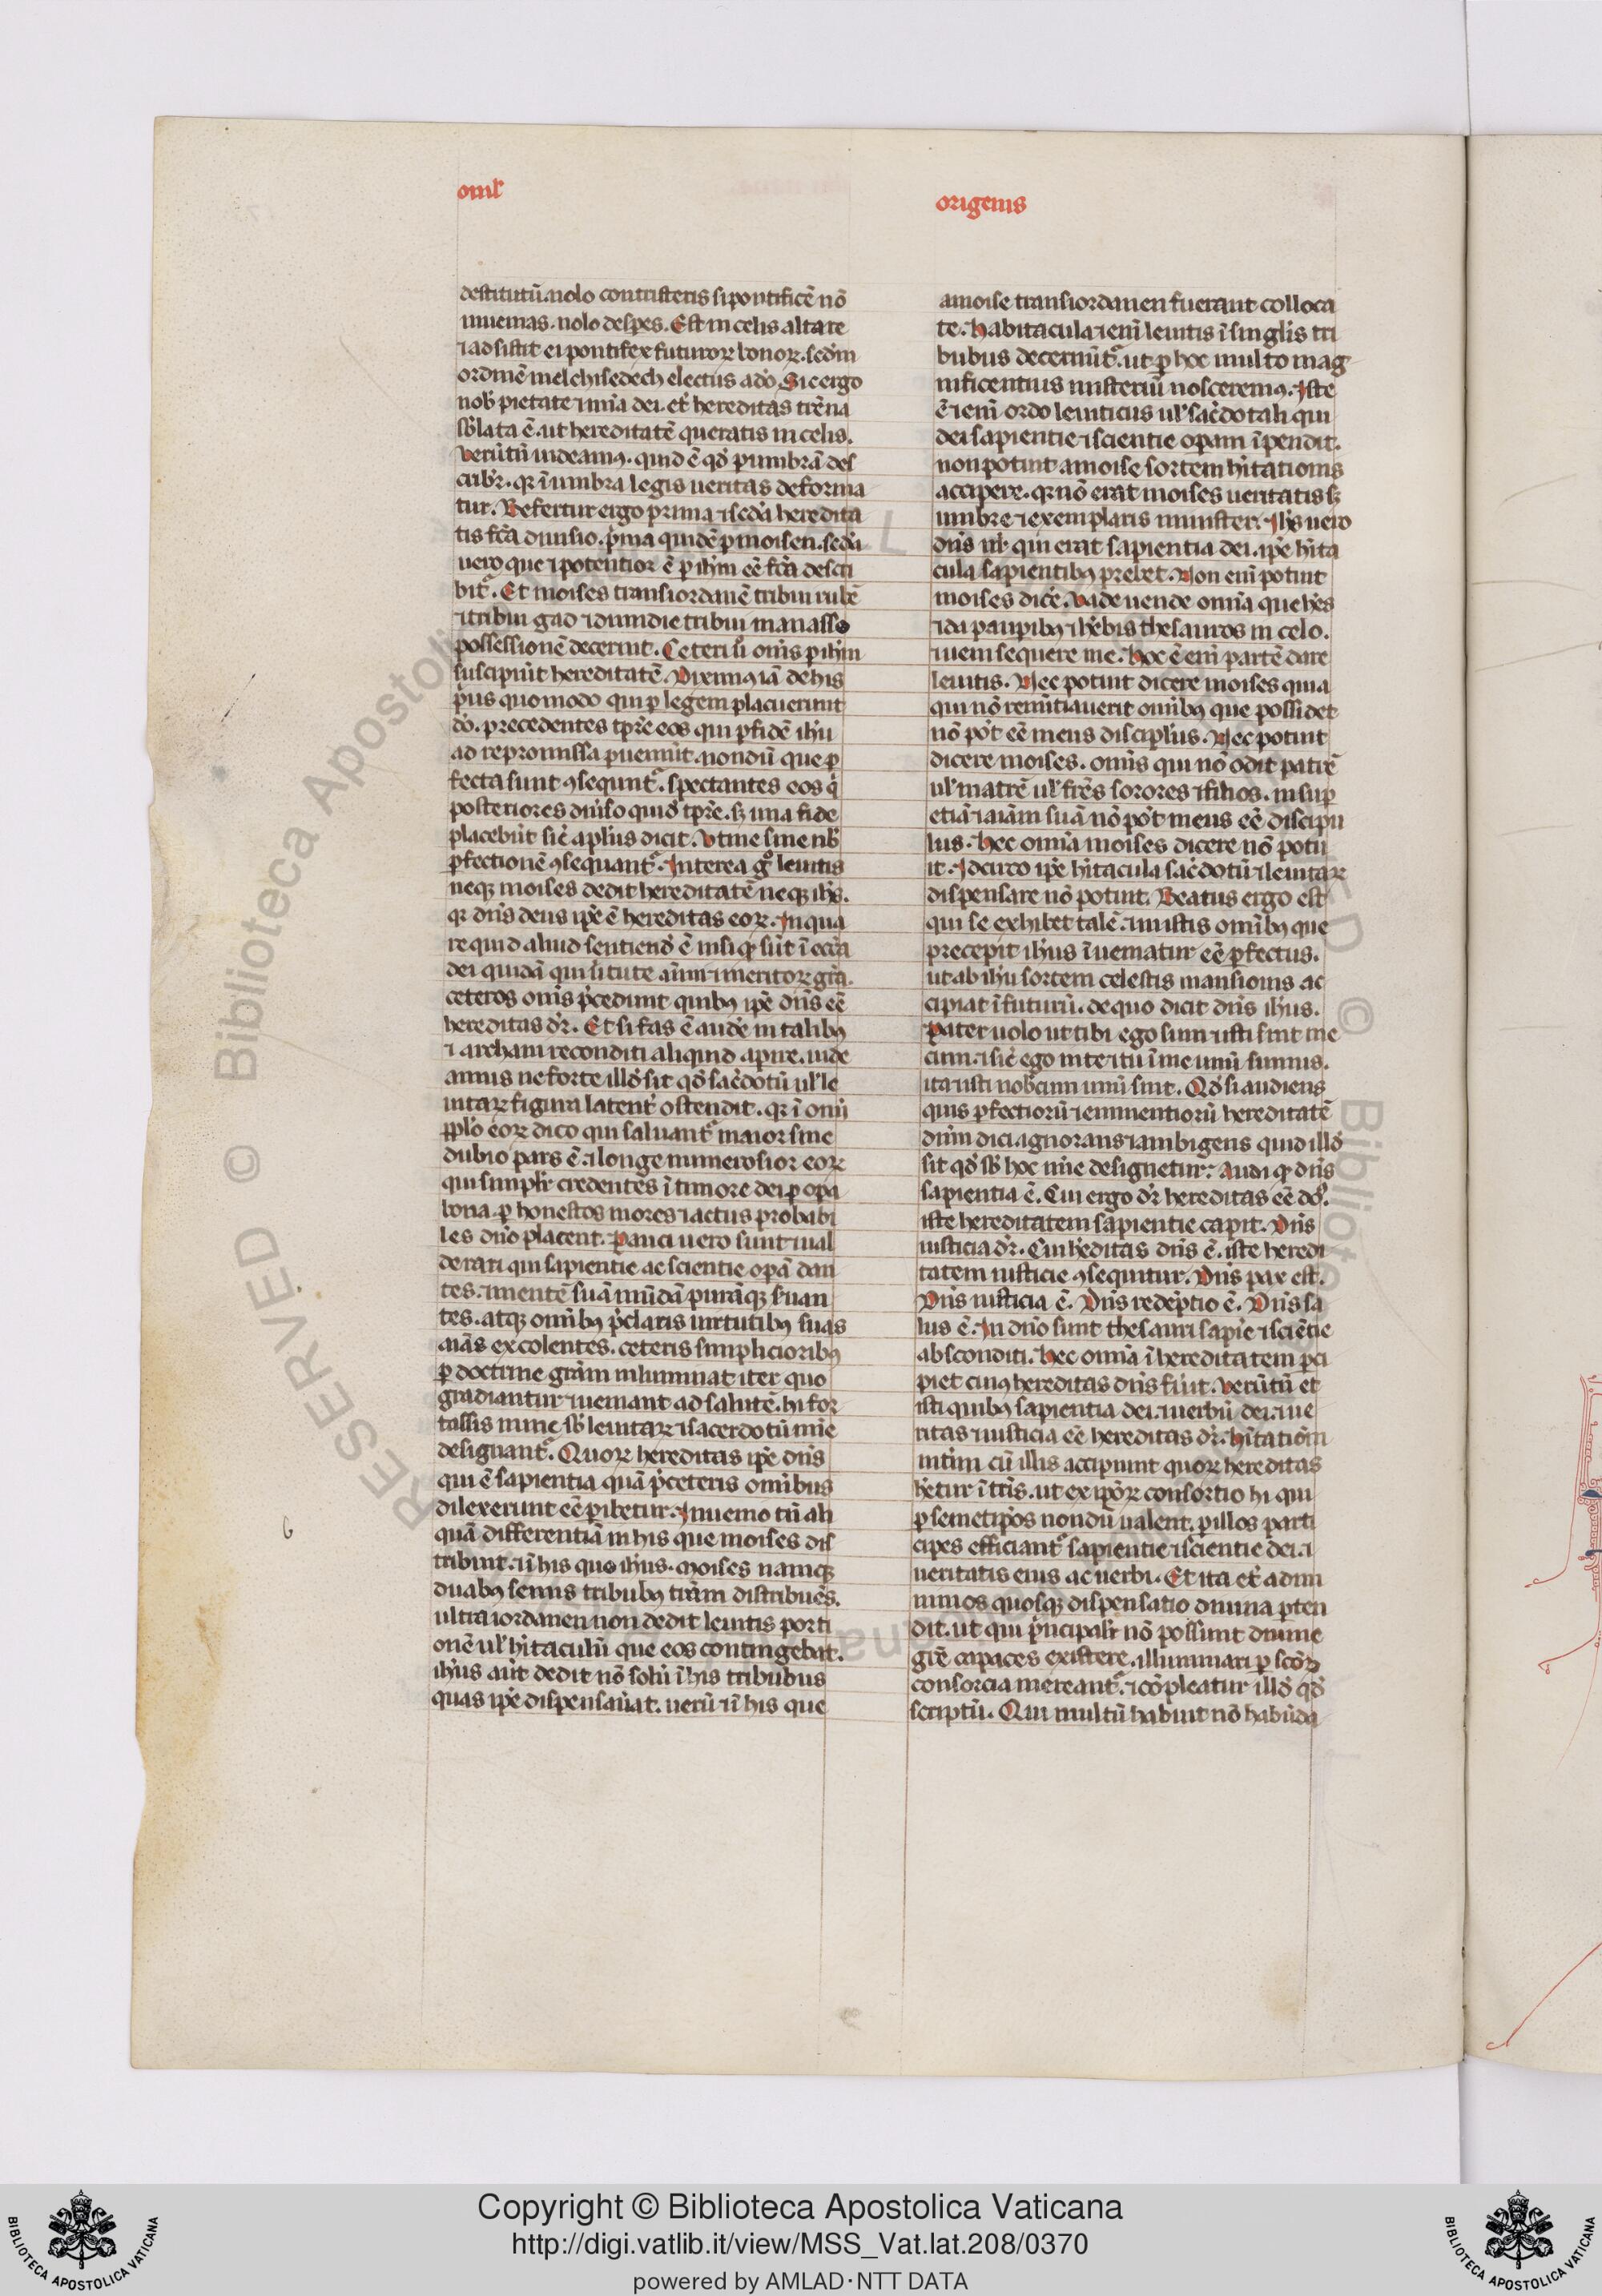 omł
origenis
destitutū. nolo contristeris si pontificē nō
inuenias. nolo despes. Est in celis altare
⁊ adsistit ei pontifex futuroꝝ bonoꝝ. scdm
ordinē melchisedech electus a dō. Sic ergo
nob pietate ⁊ mīa dei. et hereditas trēna
sblata ē. ut hereditatē queratis in celis.
Verūtn̄ uideamꝰ. quid ē qđ ꝑ umbrā des
cribr̄. qr ī umbra legis ueritas deforma
tur. Refertur ergo prima ⁊ scda heredita
tis fcā diuisio. pma quidē ꝑ moisen. scda
uero que ⁊ potentior ē ꝑ ihm eē fcā descri
bit. Et moises trans iordanē tribui rubē
⁊ tribui gad ⁊ dimidie tribui manasse
possessionē decernit. Ceteri u omīs ꝑ ihm
suscipiūt hereditatē. Diximꝰ iā de his
pus quomodo qui ꝑ legem placuerunt
dō. precedentes tpre eos qui ꝑ fidē ihu
ad repromissa ꝑuenīūt. nondū que ꝑ
fecta sunt ꝯsequnt. spectantes eos q
posteriores diuiso quidē tpre. sꝫ una fide
placebūt sic aplus dicit. Vt ne sine nb
ꝑfectionē ꝯsequant. Interea g leuitis
neqꝫ moises dedit hereditatē neqꝫ ihs.
qr dns deus ipe ē hereditas eoꝝ. In qua
re quid aliud sentiend ē nisi qr sūt ī ecca
dei quidā qui utute aīmi ⁊ meritoꝝ gra.
ceteros omīs pcedunt quibꝰ ipe dns eē
hereditas dr. Et si fas ē aude in talibꝰ
⁊ archani reconditi aliquid apire. uide
amus ne forte illd sit qđ sacdotū ul le
uitaꝝ figura latent ostendit. qr ī omi
pplo eoꝝ dico qui saluant maior sine
dubio pars ē. ⁊ longe numerosior eoꝝ
qui simplr credentes ī timore dei ꝑ opa
bona. ꝑ honestos mores ⁊ actus probabi
les dno placent. Pauci uero sunt ⁊ ual
de rari qui sapientie ac scientie opā dan
tes. ⁊ mentē suā mūdā purāqꝫ suan
tes. atqꝫ omībꝰ pclaris uirtutibꝰ suas
aiās excolentes. ceteris simplicioribꝰ
ꝑ doctrine gram inluminat iter quo
gradiantur ⁊ ueniant ad salutē. hi for
tassis nunc sb leuitaꝝ ⁊ sacerdotū nīe
designant. Quoꝝ hereditas ipe dns
qui ē sapientia quā pceteris omibus
dilexerunt eē ꝑibetur. Inuenio tn̄ ali
quā differentiā in his que moises dis
tribuit. ⁊ ī his que ihus. Moises namqꝫ
duabꝰ semis tribubꝰ tram distribuēs.
ultra iordanen non dedit leuitis porti
onē ul hitaculū que eos contingebat.
ihus aūt dedit nō solū ī his tribubus
quas ipe dispensauat. uerū ⁊ ī his que
a moise trans iordanen fuerant colloca
te. Habitacula ⁊ enī leuitis ī singlis tri
bubus decernūt. ut ꝑ hoc multo mag
nificentius misteriū nosceremꝰ. Iste
ē ⁊ enī ordo leuiticus ul sacdotali qui
dei sapientie ⁊ scientie opam īpendit.
non potuit a moise sortem hitationis
accipere. qr nō erat moises ueritatis sꝫ
umbre ⁊ exemplaris minister. Ihs uero
dns nr. qui erat sapientia dei. ipe hita
cula sapientibꝰ prebet. Non enī potuit
moises dice. Vade uende omīa que hēs
⁊ da pauꝑibꝰ ⁊ hebis thesauros in celo.
⁊ ueni sequere me. Hoc ē enī partē dare
leuitis. Nec potuit dicere moises quia
qui nō renuntiauerit omībꝰ que possidet
nō pōt eē meus disciplus. Nec potuit
dicere moises. omīs qui nō odit patrē
ul matrē ul frēs sorores ⁊ filios. insuꝑ
etiā ⁊ aiām suā nō pōt meus eē discipu
lus. Hec omīa moises dicere nō potu
it. Idcirco ipe hitacula sacdotū ⁊ leuitaꝝ
dispensare nō potuit. Beatus ergo est
qui se exhibet talē. ⁊ in istis omībꝰ que
precepit ihus īueniatur eē ꝑfectus.
ut ab ihu sortem celestis mansionis ac
cipiat ī futurū. de quo dicit dns ihus.
Pater uolo ut ubi ego sum ⁊ isti sint me
cum. ⁊ sic ego in te ⁊ tu ī me unū sumus.
ita ⁊ isti nobcum unū sint. Qđ si audiens
quis ꝑfectiorū ⁊ eminentiorū hereditatē
dnm dici. ignorans ⁊ ambigens quid illd
sit qđ sb hoc nīe designetur. Audi qr dns
sapientia ē. Cui ergo dr hereditas eē ds.
iste hereditatem sapientie capit. Dns
iusticia dr. Cui heditas dns ē. iste heredi
tatem iusticie ꝯsequitur. Dns pax est.
Dns iusticia ē. Dns redeptio ē. Dns sa
lus ē. In dno sunt thesauri sapie ⁊ sciētie
absconditi. Hec omīa ī hereditatem ꝑci
piet cuiꝰ hereditas dns fiūt. Verūtn̄ et
isti quibꝰ sapientia dei. ⁊ uerbū dei. ⁊ ue
ritas ⁊ iusticia eē hereditas dr. hitatiōm
intim cū illis accipiunt quoꝝ hereditas
hetur ī tris. ut ex ipōꝝ consortio hi qui
ꝑ semetipos nondū ualent. ꝑ illos parti
cipes efficiant sapientie ⁊ scientie dei. ⁊
ueritatis eius ac uerbi. Et ita et ad mi
nimos quosqꝫ dispensatio diuina ꝑten
dit. ut qui pncipalr nō possunt diuine
grē capaces existere. illuminari ꝑ scōꝝ
consorcia mereant. ⁊ cōpleatur illd qđ
scriptū. Qui multū habuit nō habūda
6
RESERVED © Biblioteca Apostolica Vaticana
Copyright © Biblioteca Apostolica Vaticana
http://digi.vatlib.it/view/MSS_Vat.lat.208/0370
powered by AMLAD·NTT DATA
BIBLIOTECA APOSTOLICA VATICANA
BIBLIOTECA APOSTOLICA VATICANA